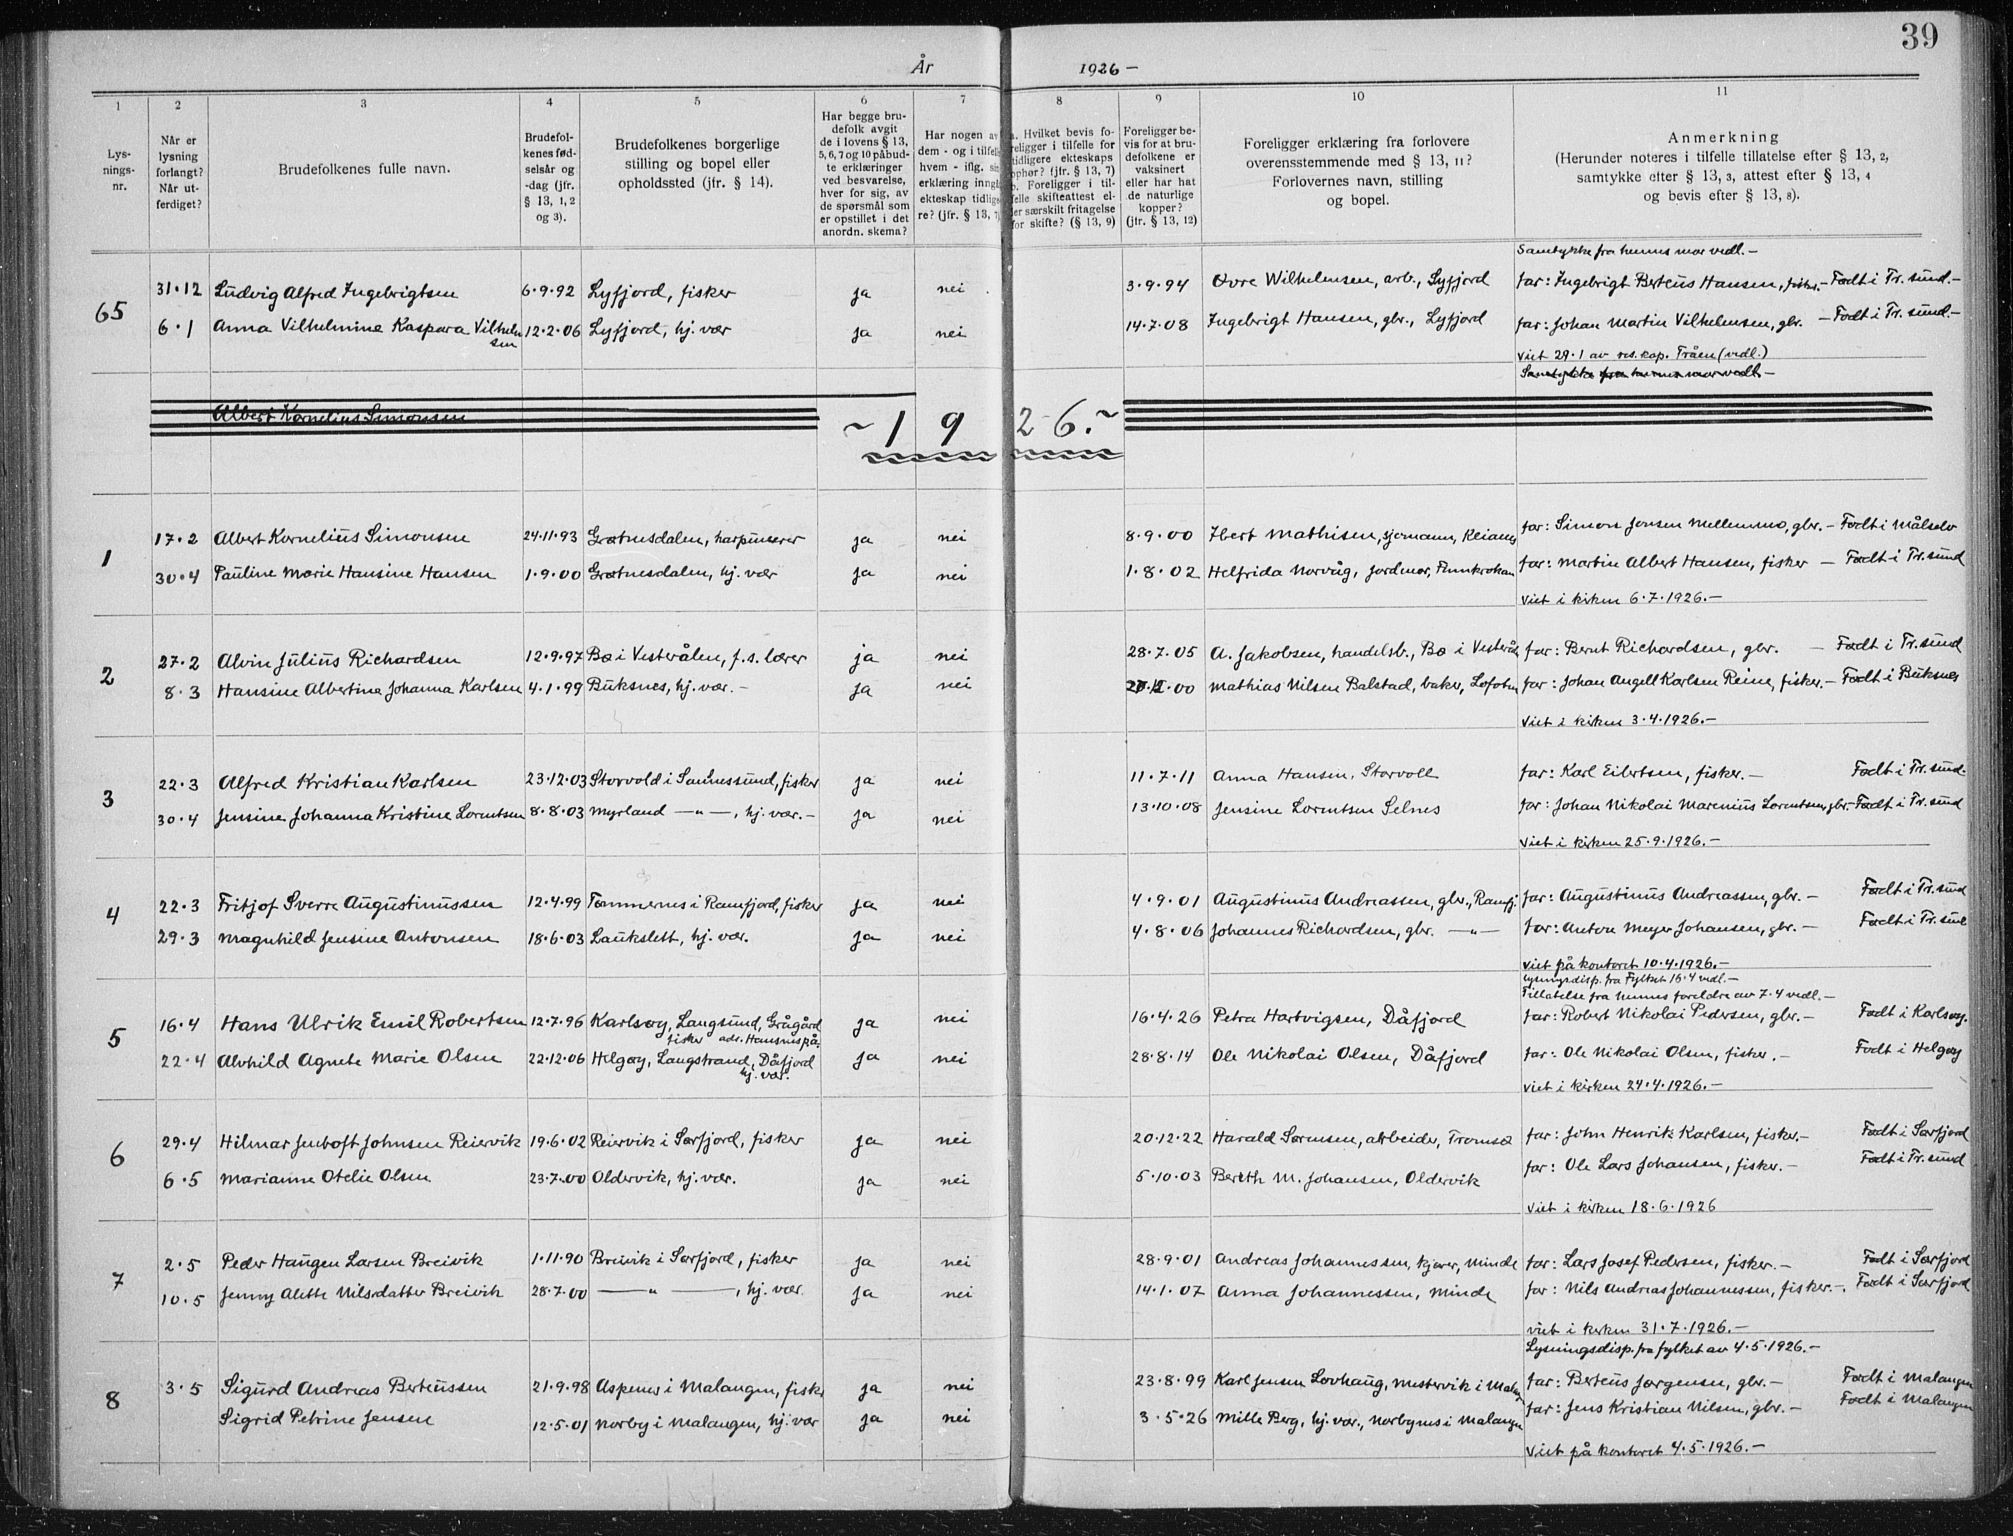 39
År 1926 –
1 2 3 4 5 6 7 8 9 10 11
Lys-
nings-
nr.
Når er
lysning
forlangt?
Når ut-
ferdiget?
Brudefolkenes fulle navn.
Brudefol-
kenes fød-
selsår og
-dag (jfr.
§ 13, 1, 2
og 3).
Brudefolkenes borgerlige
stilling og bopel eller
opholdssted (jfr. § 14).
Har begge bru-
defolk avgit
de i lovens § 13,
5, 6, 7 og 10 påbud-
te erklæringer
ved besvarelse,
hver for sig, av
de spørsmål som
er opstillet i det
anordn. skema?
Har nogen av
dem - og i tilfelle
hvem - iflg. si
erklæring inngå
ekteskap tidlig
re? (jfr. § 13, 7)
a. Hvilket bevis fo-
religger i tilfelle for
tidligere ekteskaps
ophør? (jfr. § 13, 7)
b. Foreligger i til-
felle skifteattest el-
ler særskilt fritagelse
for skifte? (§ 13, 9)
Foreligger be-
vis for at bru-
defolkene er
vaksinert
eller har hat
de naturlige
kopper?
(jfr. § 13, 12)
Foreligger erklæring fra forlovere
overensstemmende med § 13, 11?
Forlovernes navn, stilling
og bopel.
Anmerkning
(Herunder noteres i tilfelle tillatelse efter § 13, 2,
samtykke efter § 13, 3, attest efter § 13, 4
og bevis efter § 13, 8).
Samtykke fra hennes mor vedl. –
65 31·12 Ludvig Alfred Ingebrigtsen 6·9·92 Lyfjord, fisker ja nei 3·9·94 Ovre Wilhelmsen, arb., Lyfjord far: Ingebrigt Berteus Hansen, fisker. – Født i Tr.sund. –
6·1 Anna Vilhelmine Kaspara Vilhelm 12·2·06 Lyfjord, hj. vær ja nei 14·7·08 Ingebrigt Hansen, gbr., Lyfjord far: Johan Martin Vilhelmsen, gbr. – Født i Tr.sund. –
sen
Viet 29·1 av res. kap. Tråen (vedl.)
Samtykke fra hennes mor vedl. –
Albert Kornelius Simonsen
~ 1 9 2 6. ~
1 17·2 Albert Kornelius Simonsen 24·11·93 Grøtnesdalen, harpunerer ja nei 8·9·00 Ibert Mathisen, sjømann, Reiarnes far: Simon Jensen Mellemmo, gbr. – Født i Målselv
30·4 Pauline Marie Hansine Hansen 1·9·00 Grøtnesdalen, hj. vær ja nei 1·8·02 Helfrida Norvåg, jordmor, Finnkroken far: Martin Albert Hansen, fisker – Født i Tr.sund
Viet i kirken 6·7·1926. –
2 27·2 Alvin Julius Richardsen 12·9·97 Bø i Vesterålen, f.s. lærer ja nei 28·7·05 A. Jakobsen, handelsb., Bø i Vesterålen far: Bernt Richardsen, gbr. – Født i Tr.sund
8·3 Hansine Albertine Johanna Karlsen 4·1·99 Buksnes, hj. vær. – ja nei ·00 Mathias Nilsen Balstad, baker, Lofoten far: Johan Angell Karlsen Reine, fisker. – Født i Buksnes
Viet i kirken 3·4·1926. –
3 22·3 Alfred Kristian Karlsen 23·12·03 Storvold i Sannessund, fisker ja nei 11·7·11 Anna Hansen, Storvoll far: Karl Eilertsen, fisker. – Født i Tr.sund.
30·4 Jensine Johanna Kristine Lorentsen 8·8·03 Myrland – " –, hj. vær. – ja nei 13·10·08 Jensine Lorentsen Selnes far: Johan Nikolai Marenius Lorentsen, gbr. – Født i Tr.sund
Viet i kirken 25·9·1926. –
4 22·3 Fritjof Sverre Augustinussen 12·4·99 Tømmernes i Ramfjord, fisker ja nei 4·9·01 Augustinus Andreassen, gbr., Ramfj. far: Augustinus Andreassen, gbr. – Født i Tr.sund
29·3 Magnhild Jensine Antonsen 18·6·03 Laukslett, hj. vær. ja nei 4·8·06 Johannes Richardsen, gbr. – " – far: Anton Meyer Johansen, gbr. – Født i Tr.sund
Viet på kontoret 10·4·1926. –
Lysningsdisp. fra Fylket 16·4 vedl. –
Tillatelse fra hennes foreldre av 7·4 vedl. –
5 16·4 Hans Ulrik Emil Robertsen 12·7·96 Karlsøy, Langsund, Grågård ja nei 16·4·26 Petra Hartvigsen, Dåfjord far: Robert Nikolai Pedersen, gbr. – Født i Karlsøy.
fisker adr. Hansnes på.
22·4 Alvhild Agnete Marie Olsen 22·12·06 Helgøy, Langstrand, Dåfjord ja nei 28·8·14 Ole Nikolai Olsen, Dåfjord far: Ole Nikolai Olsen, fisker. – Født i Helgøy
hj. vær.
Viet i kirken 24·4·1926. –
6 29·4 Hilmar Jentoft Johnsen Reiervik 19·6·02 Reiervik i Sørfjord, fisker ja nei 20·12·22 Harald Sørensen, arbeider, Tromsø far: John Henrik Karlsen, fisker. – Født i Sørfjord
6·5 Marianne Otelie Olsen 23·7·00 Oldervik, hj. vær. ja nei 5·10·03 Bereth M. Johansen, Oldervik far: Ole Lars Johansen, fisker. – Født i Tr.sund
Viet i kirken 18·6·1926
7 2·5 Peder Haugen Larsen Breivik 1·11·90 Breivik i Sørfjord, fisker ja nei 28·9·01 Andreas Johannessen, kjører, Minde far: Lars Josef Pedersen, fisker. – Født i Sørfjord
10·5 Jenny Alette Nilsdatter Breivik 28·7·00 – " –, hj. vær ja nei 14·1·07 Anna Johannessen, Minde far: Nils Andreas Johannessen, fisker. – Født i Sørfjord
Viet i kirken 31·7·1926. –
Lysningsdisp. fra fylket av 4·5·1926. –
8 3·5 Sigurd Andreas Berteussen 21·9·98 Aspenes i Malangen, fisker ja nei 23·8·99 Karl Jensen Lovhaug, Mestervik i Malan far: Berteus Jørgensen, gbr. – Født i Malangen
Sigrid Petrine Jensen 12·5·01 Norby i Malangen, hj. vær ja nei 3·5·26 Mille Berg, hj. vær., Norbynes i Malangen far: Jens Kristian Nilsen, gbr. – Født i Malangen
Viet på kontoret 4·5·1926. –